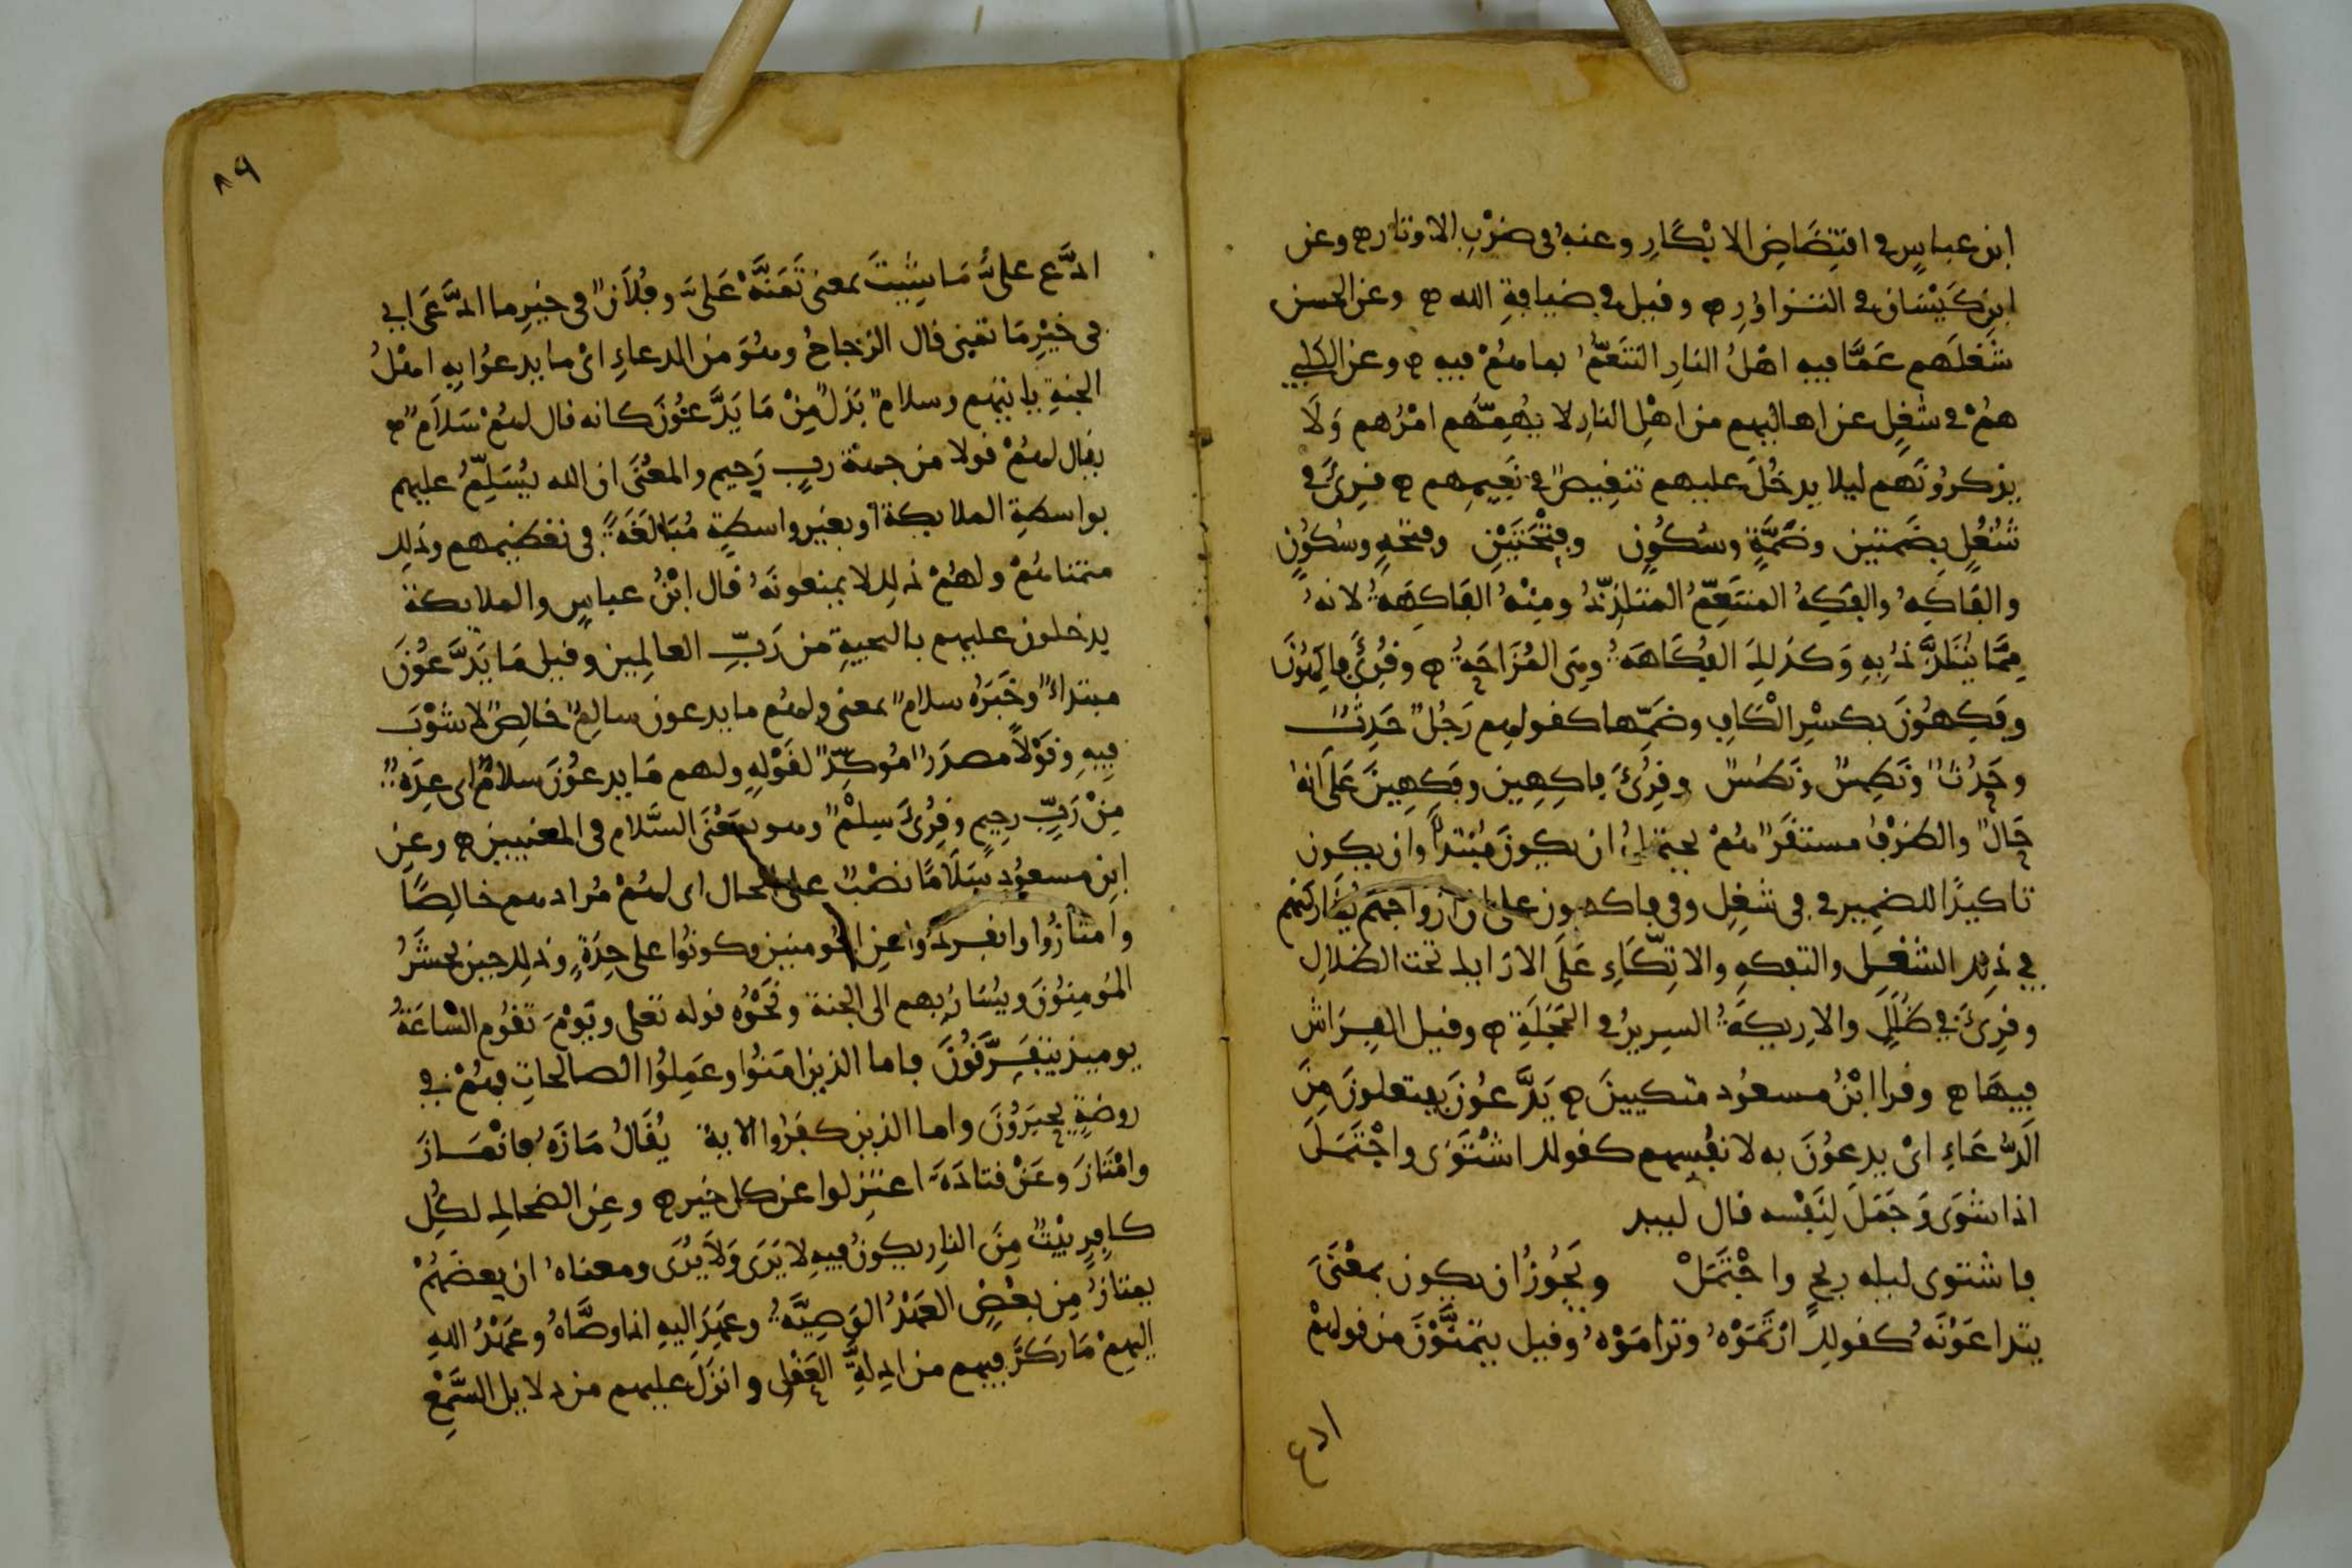 ابن عباس في افتضاض الابكار وعنه في ضرب الاوتار وعن
ابن كيسان في التزاور وقيل في ضيافة الله وعن الحسن
شغلهم عما فيه اهل النار التنعم بما هم فيه وعن الكلبي
هم في شغل عن اهاليهم من اهل النار لا يهمهم امرهم ولا
يذكرونهم ليلا يدخل عليهم تنغيص في نعيمهم قرئ في
شغل بضمتين وضمة وسكون وفتحتين وفتحة وسكون
والفاكه والفكه المتنعم المتلذذ ومنه الفاكهة لانه
مما يتلذذ به وكذلك الفكاهة وهي المزاحة وقرئ فاكهون
وفكهون بكسر الكاف وضمها كقولهم رجل حدث
وحدث ونطس ونطس وقرئ فاكهين وفكهين على انه
حال والظرف مستقر هم يحتمل ان يكون مبتدأ وان يكون
تاكيدا للضمير في في شغل وفي فاكهون على ان ازواجهم يشاركنهم
في ذلك الشغل والتفكه والاتكاء على الارايك تحت الظلال
وقرئ في ظلل والاريكة السرير في الحجلة وقيل الفراش
فيها وقرا ابن مسعود متكيين يدعون يفتعلون من
الدعاء اي يدعون به لانفسهم كقولك اشتوى واجتمل
اذا شوى وجمل لنفسه قال لبيد
فاشتوى ليلة ريح واجتمل ويجوز ان يكون بمعنى
يتداعونه كقولك ارتموه وتراموه وقيل يتمنون من قولهم
ادع
٨٩
ادع علي ما شيت بمعنى تمنه علي وفلان في خير ما ادعى اي
في خير ما تمنى قال الزجاج وهو من الدعاء اي ما يدعوا به اهل
الجنة ياتيهم وسلام بدل من ما يدعون كانه قال لهم سلام
يقال لهم قولا من جهة رب رحيم والمعنى ان الله يسلم عليهم
بواسطة الملايكة او بغير واسطة مبالغة في تعظيمهم وذلك
متمناهم ولهم ذلك لا يمنعونه قال ابن عباس والملايكة
يدخلون عليهم بالتحية من رب العالمين وقيل ما يدعون
مبتداء وخبره سلام بمعنى ولهم ما يدعون سالم خالص لا شوب
فيه وقولا مصدر مؤكد لقوله ولهم ما يدعون سلام اي عدة
من رب رحيم وقرئ سلم وهو بمعنى السلام في المعنيين وعن
ابن مسعود سلاما نصب على الحال اي لهم مرادهم خالصا
وامتازوا وانفردوا عن المومنين وكونوا على حدة وذلك حين يحشر
المومنون ويسار بهم الى الجنة ونحوه قوله تعلى ويوم تقوم الساعة
يوميذ يتفرقون فاما الذين امنوا وعملوا الصالحات فهم في
روضة يحبرون واما الذين كفروا الاية يقال مازه فانماز
وامتاز وعن قتادة اعتزلوا عن كل خير وعن الضحاك لكل
كافر بيت من النار يكون فيه لا يرى ولا يرى ومعناه ان بعضهم
يمتاز من بعض العهد الوصية وعهد اليه اذا وصاه وعهد الله
اليهم ما ركز فيهم من ادلة العقل وانزل عليهم من دلايل السمع